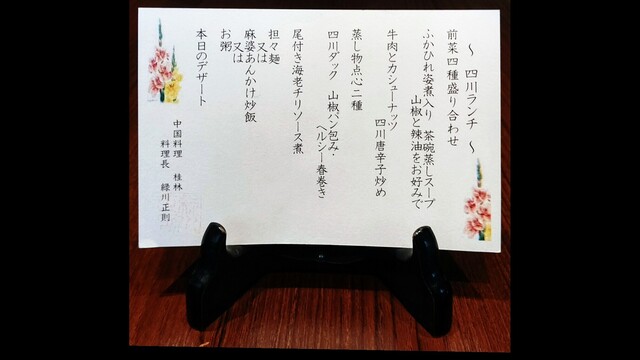 ～ 四川ランチ ～
前菜四種盛り合わせ
ふかひれ姿煮入り 茶碗蒸しスープ
山椒と辣油をお好みで
牛肉とカシューナッツ
四川唐辛子炒め
蒸し物点心二種
四川ダック 山椒パン包み・
ヘルシー春巻き
尾付き海老チリソース煮
担々麺
又は
麻婆あんかけ炒飯
又は
お粥
本日のデザート
中国料理 桂林
料理長 緑川正則